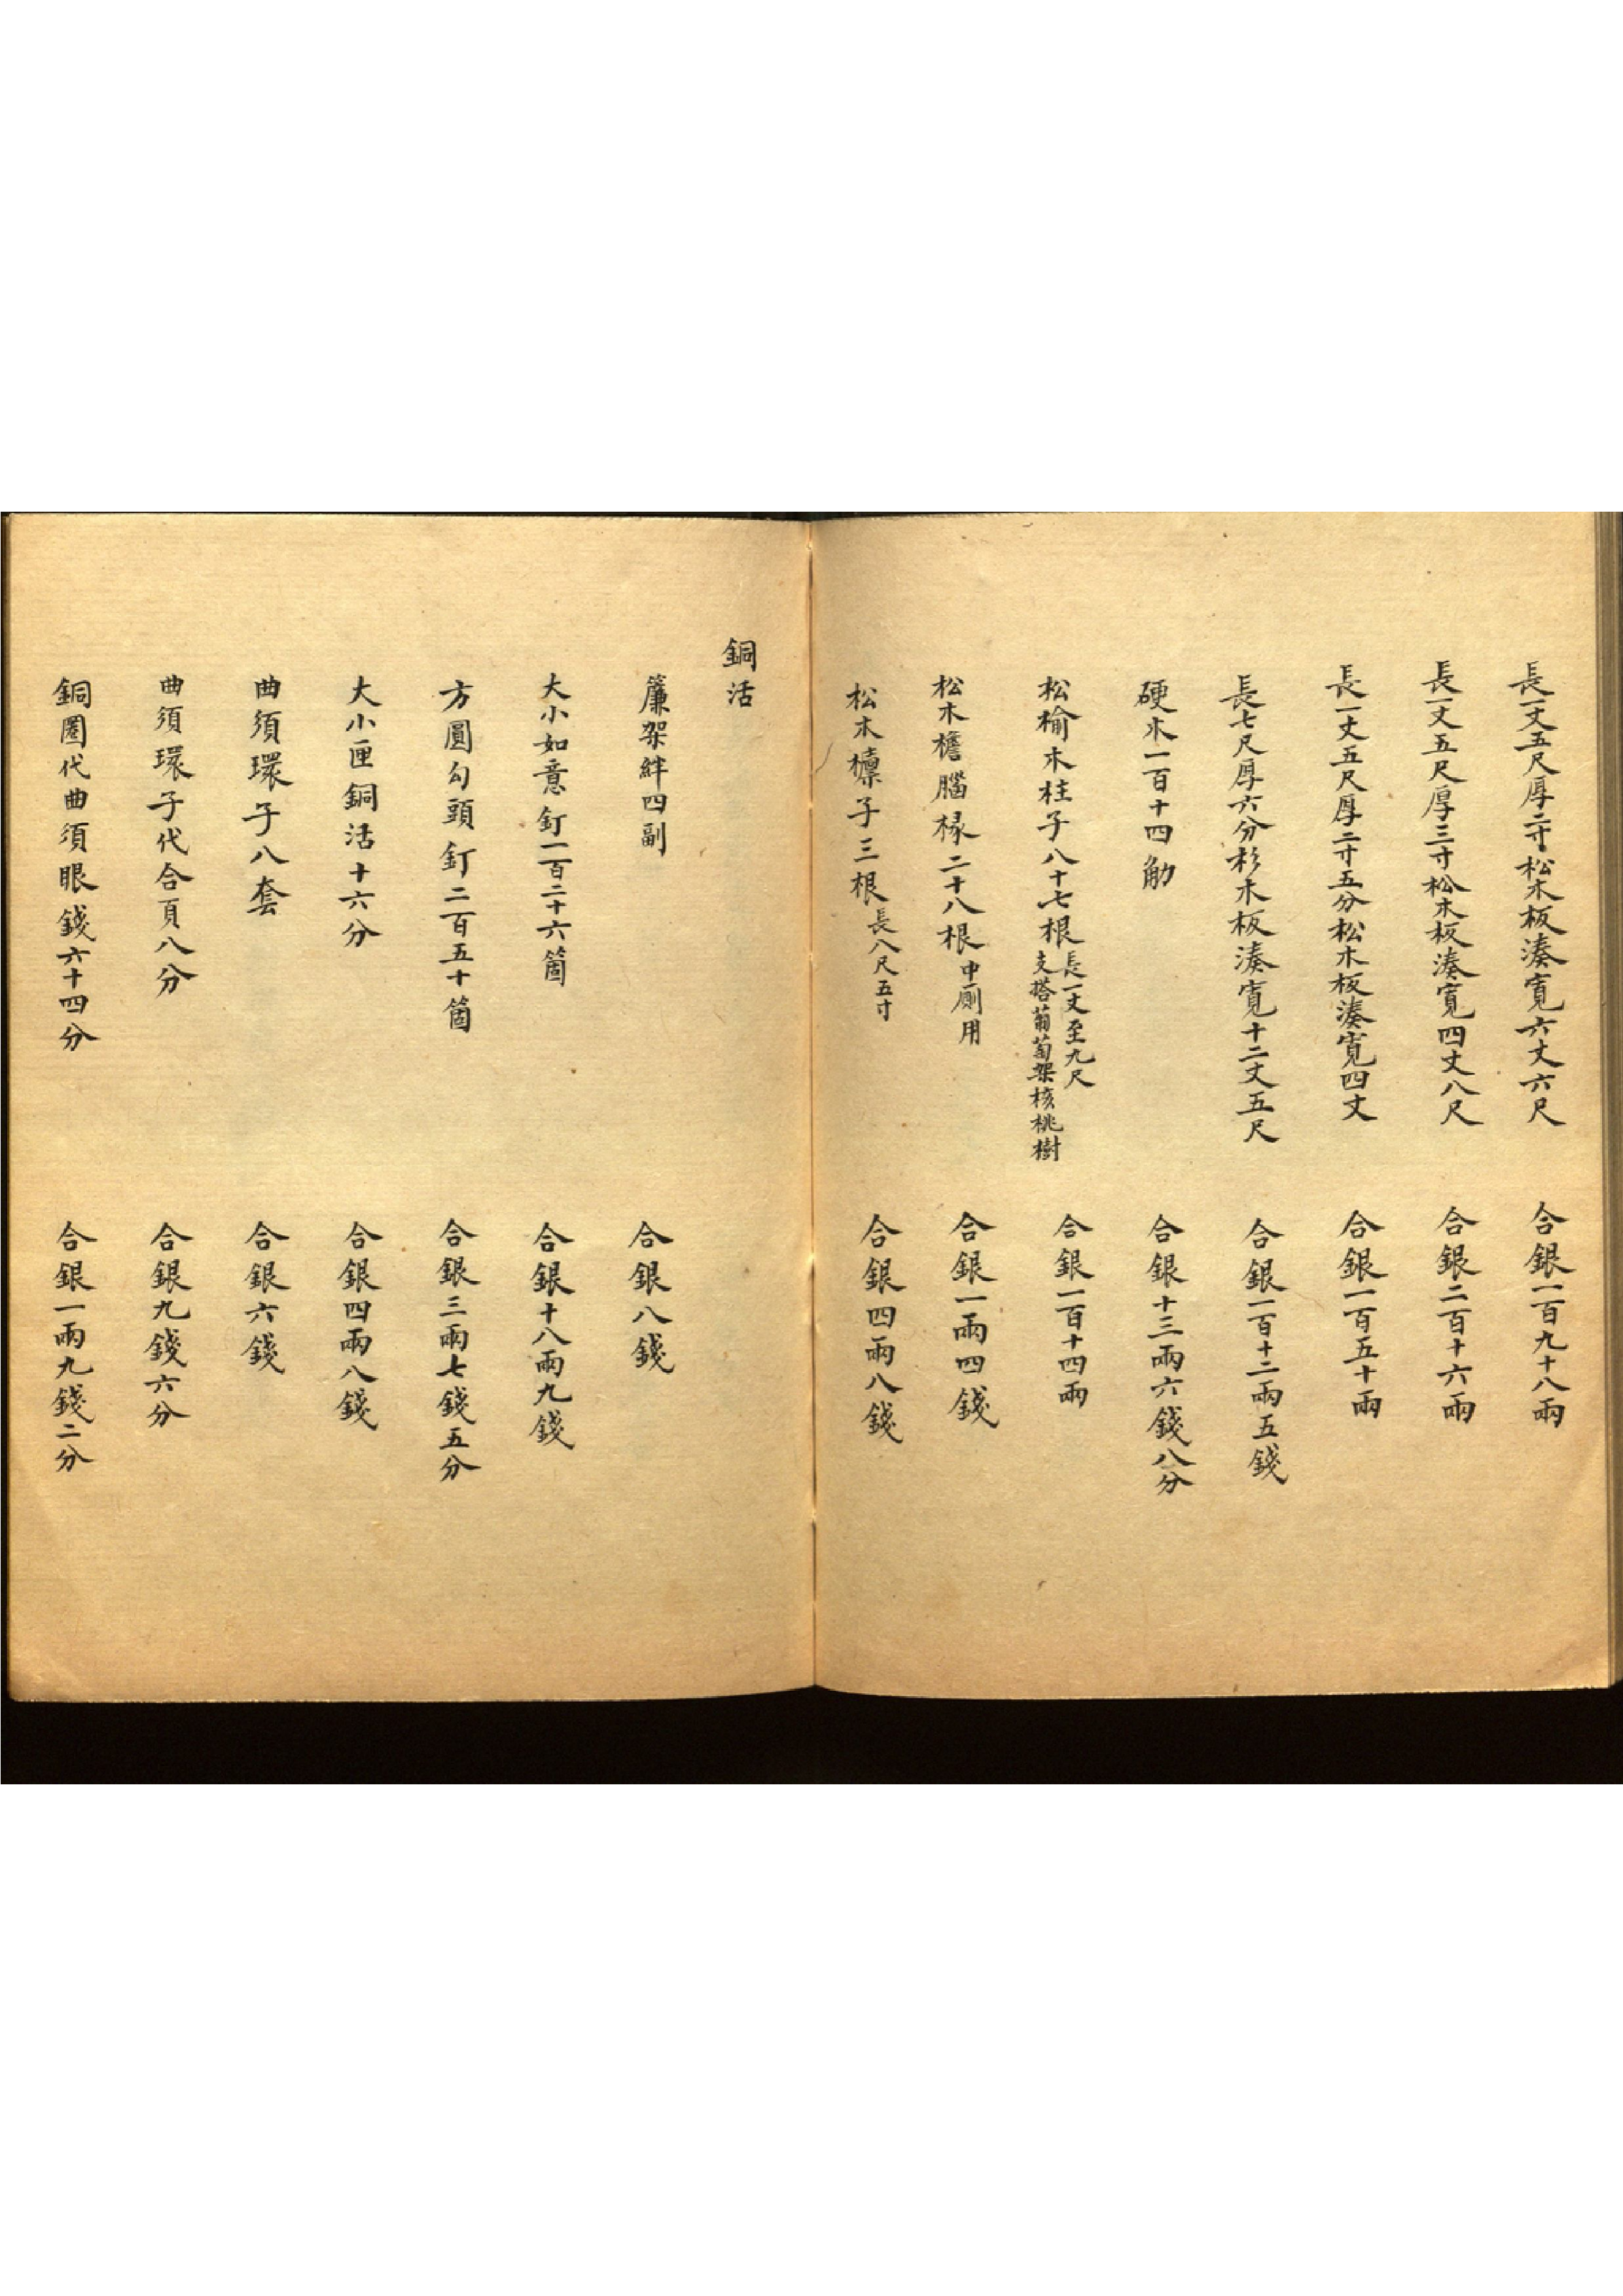 長一丈五尺厚二寸松木板湊寬六丈六尺　合銀一百九十八兩
長一丈五尺厚三寸松木板湊寬四丈八尺　合銀二百十六兩
長一丈五尺厚二寸五分松木板湊寬四丈　合銀一百五十兩
長七尺厚六分杉木板湊寬十二丈五尺　合銀一百十二兩五錢
硬木一百十四觔　合銀十三兩六錢八分
松榆木柱子八十七根長一丈至九尺支搭葡萄架核桃樹　合銀一百十四兩
松木檐腦椽二十八根中厠用　合銀一兩四錢
松木檁子三根長八尺五寸　合銀四兩八錢
銅活
簾架絆四副　合銀八錢
大小如意釘一百二十六箇　合銀十八兩九錢
方圓勾頭釘二百五十箇　合銀三兩七錢五分
大小匣銅活十六分　合銀四兩八錢
曲須環子八套　合銀六錢
曲須環子代合頁八分　合銀九錢六分
銅圈代曲須眼錢六十四分　合銀一兩九錢二分